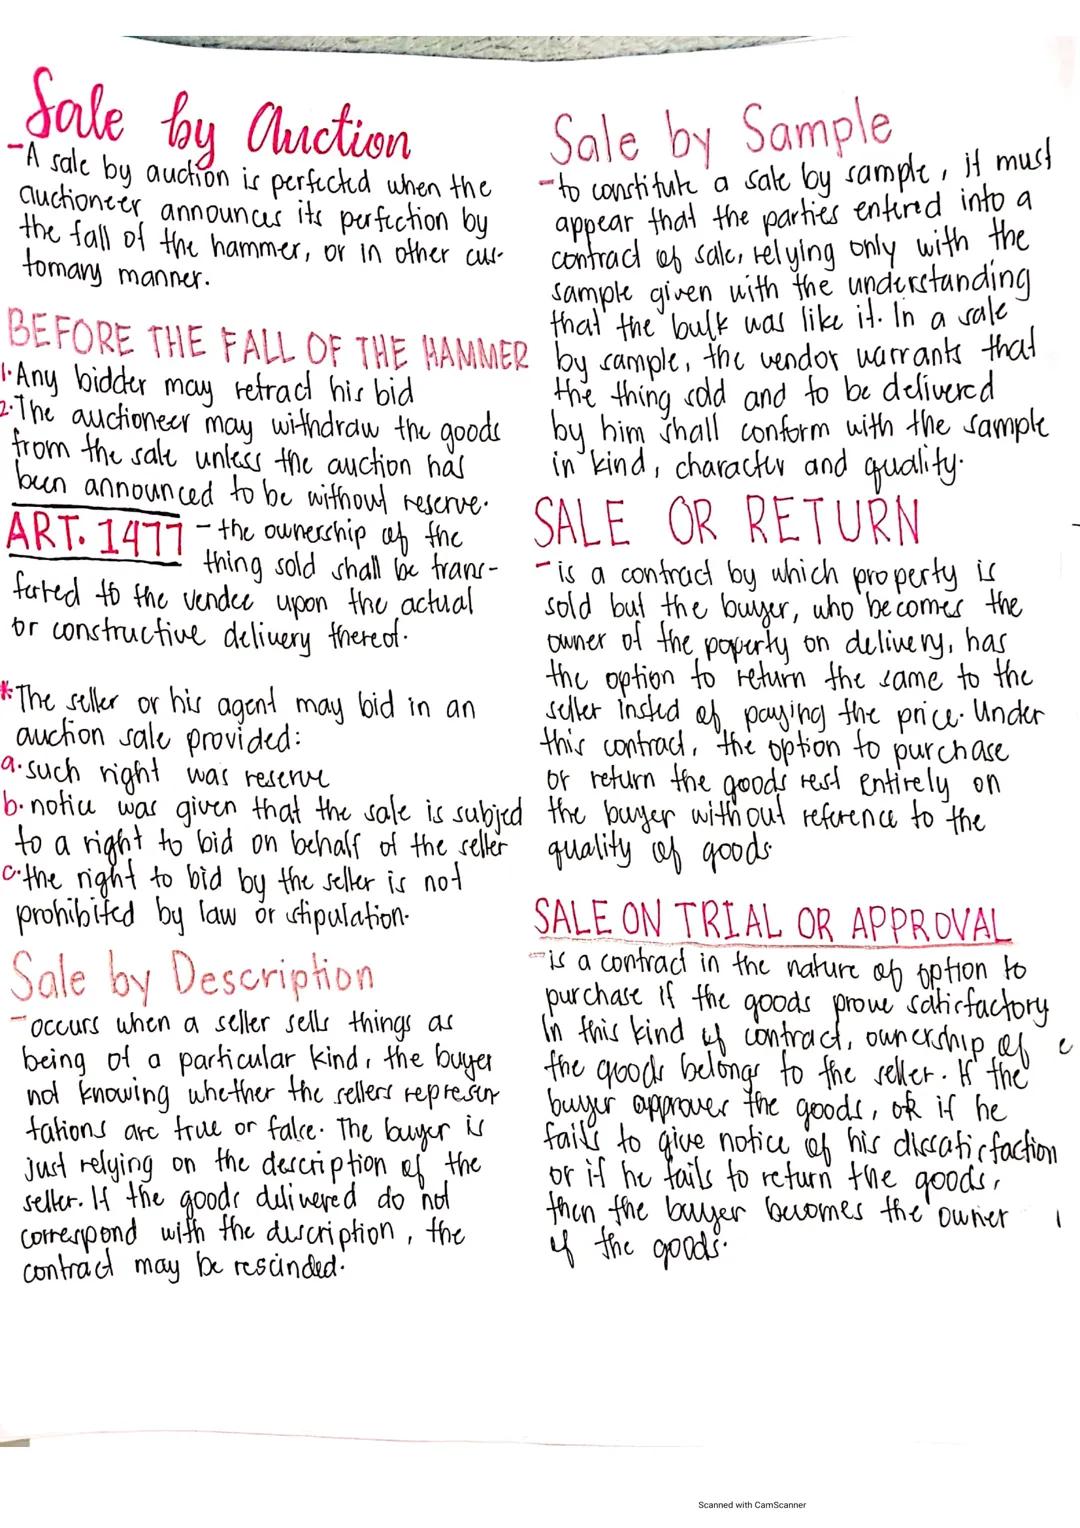 Sale by Auction
- A sale by auction is perfected when the
auctioneer announces its perfection by
the fall of the hammer, or in other cus-
tomary manner.
BEFORE THE FALL OF THE HAMMER
1. Any bidder may retract his bid
2. The auctioneer may withdraw the goods
from the sale unless the auction has
been announced to be without reserve.
ART. 1477 - the ownership of the
thing sold shall be trans-
ferred to the vendee upon the actual
or constructive delivery thereof.
* The seller or his agent may bid in an
auction sale provided:
a. such right was reserve
b. notice was given that the sale is subject
to a right to bid on behalf of the seller
c. the right to bid by the seller is not
prohibited by law or stipulation.
Sale by Description
- occurs when a seller sells things as
being of a particular kind, the buyer
not knowing whether the sellers represen
tations are true or false. The buyer is
just relying on the description of the
seller. If the goods delivered do not
correspond with the description, the
contract may be rescinded.
Sale by Sample
- to constitute a sale by sample, it must
appear that the parties entered into a
contract of sale, relying only with the
sample given with the understanding
that the bulk was like it. In a sale
by sample, the vendor warrants that
the thing sold and to be delivered
by him shall conform with the sample
in kind, character and quality.
SALE OR RETURN
- is a contract by which property is
sold but the buyer, who becomes the
owner of the poperty on delivery, has
the option to return the same to the
seller insted of paying the price. Under
this contract, the option to purchase
or return the goods rest entirely on
the buyer without reference to the
quality of goods
SALE ON TRIAL OR APPROVAL
- is a contract in the nature of option to
purchase if the goods prove satisfactory
In this kind of contract, ownership of
the goods belongs to the seller. If the
buyer approves the goods, or if he
fails to give notice of his dissatisfaction
or if he fails to return the goods,
then the buyer becomes the owner
of the goods.
Scanned with CamScanner